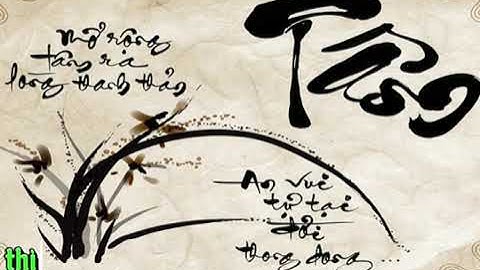 Tâm
Mở rộng
tâm ra
lòng thanh thản
An vui
tự tại
đời
thong dong ...
thi